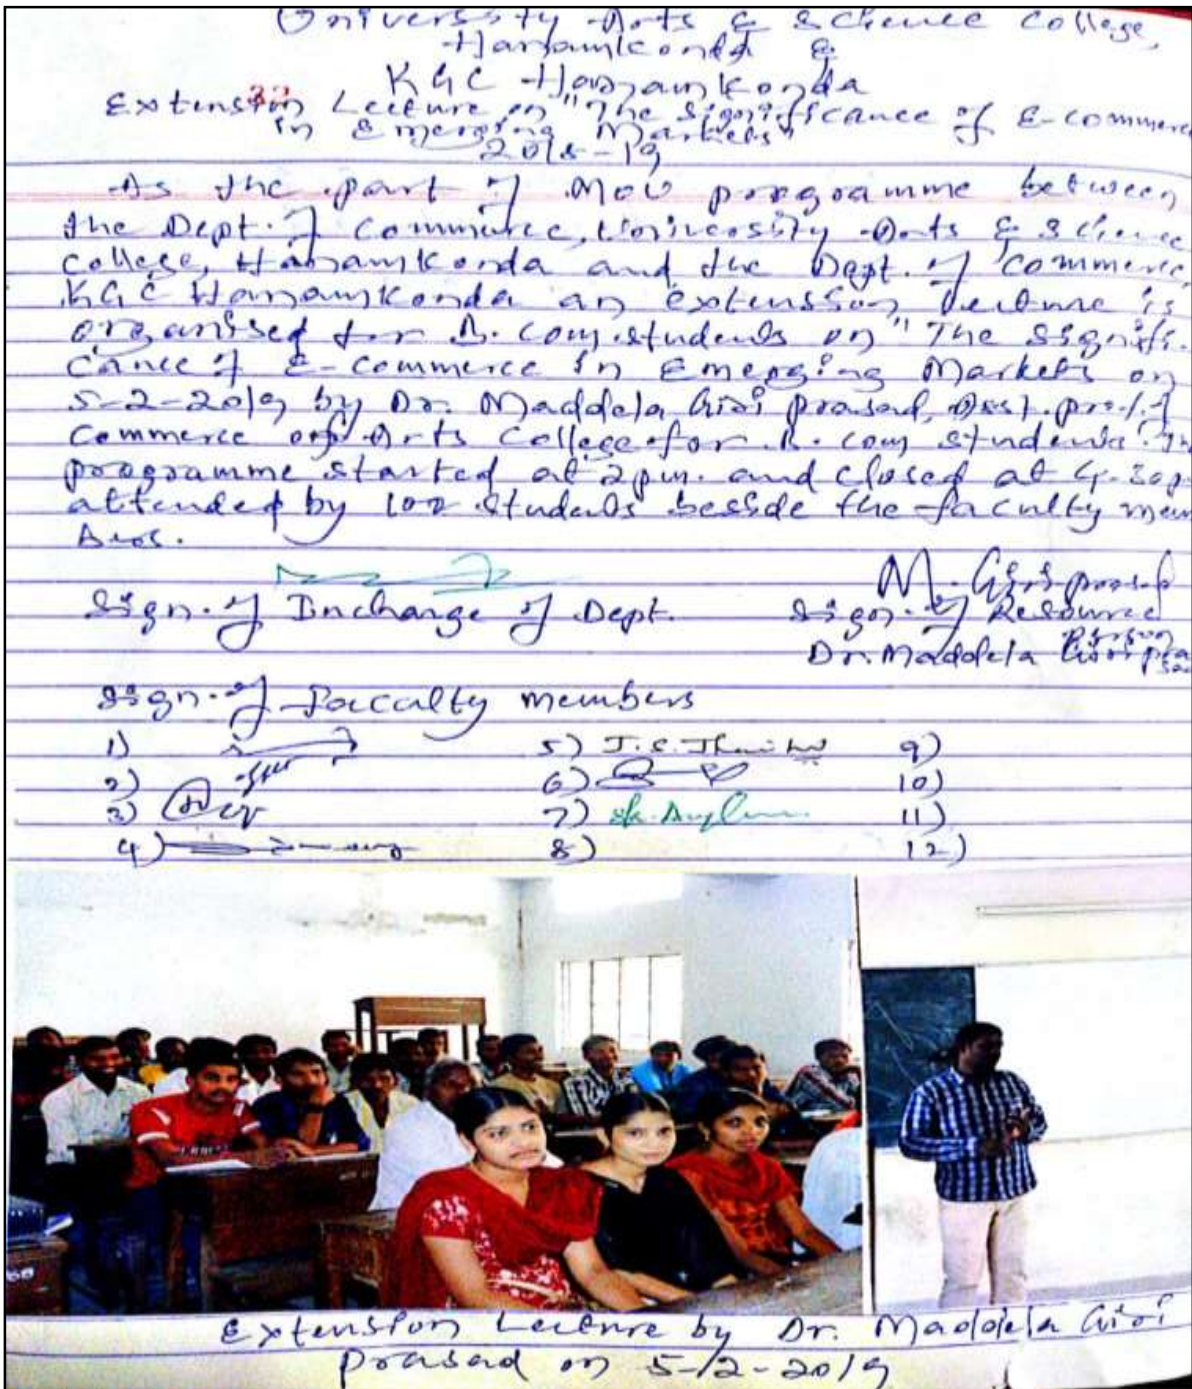 University Arts & Science College,
Hanamkonda &
KGC Hanamkonda
Extension Lecture on "The Significance of E-commerce
in Emerging Markets"
2018-19
As the part of MOU programme between
the Dept. of Commerce, University Arts & Science
College, Hanamkonda and the Dept. of Commerce
KGC Hanamkonda an extension lecture is
organised for B. Com students on "The Signifi-
cance of E-Commerce in Emerging Markets on
5-2-2019 by Dr. Maddela Giri prasad, Asst. prof. of
Commerce Arts College for B. Com students.
programme started at 2pm. and closed at 4.30p
attended by 102 students besside the faculty mem
bers.
M. Giri prasad
Sign. of Incharge of Dept.
Sign. of Resource
Person
Dr. Maddela Giri pra
sad
Sign. of Faccalty members
1)
2)
3)
4)
5) J.S.
6)
7) sk.
8)
9)
10)
11)
12)
Extension Lecture by Dr. Maddela Giri
prasad on 5-2-2019